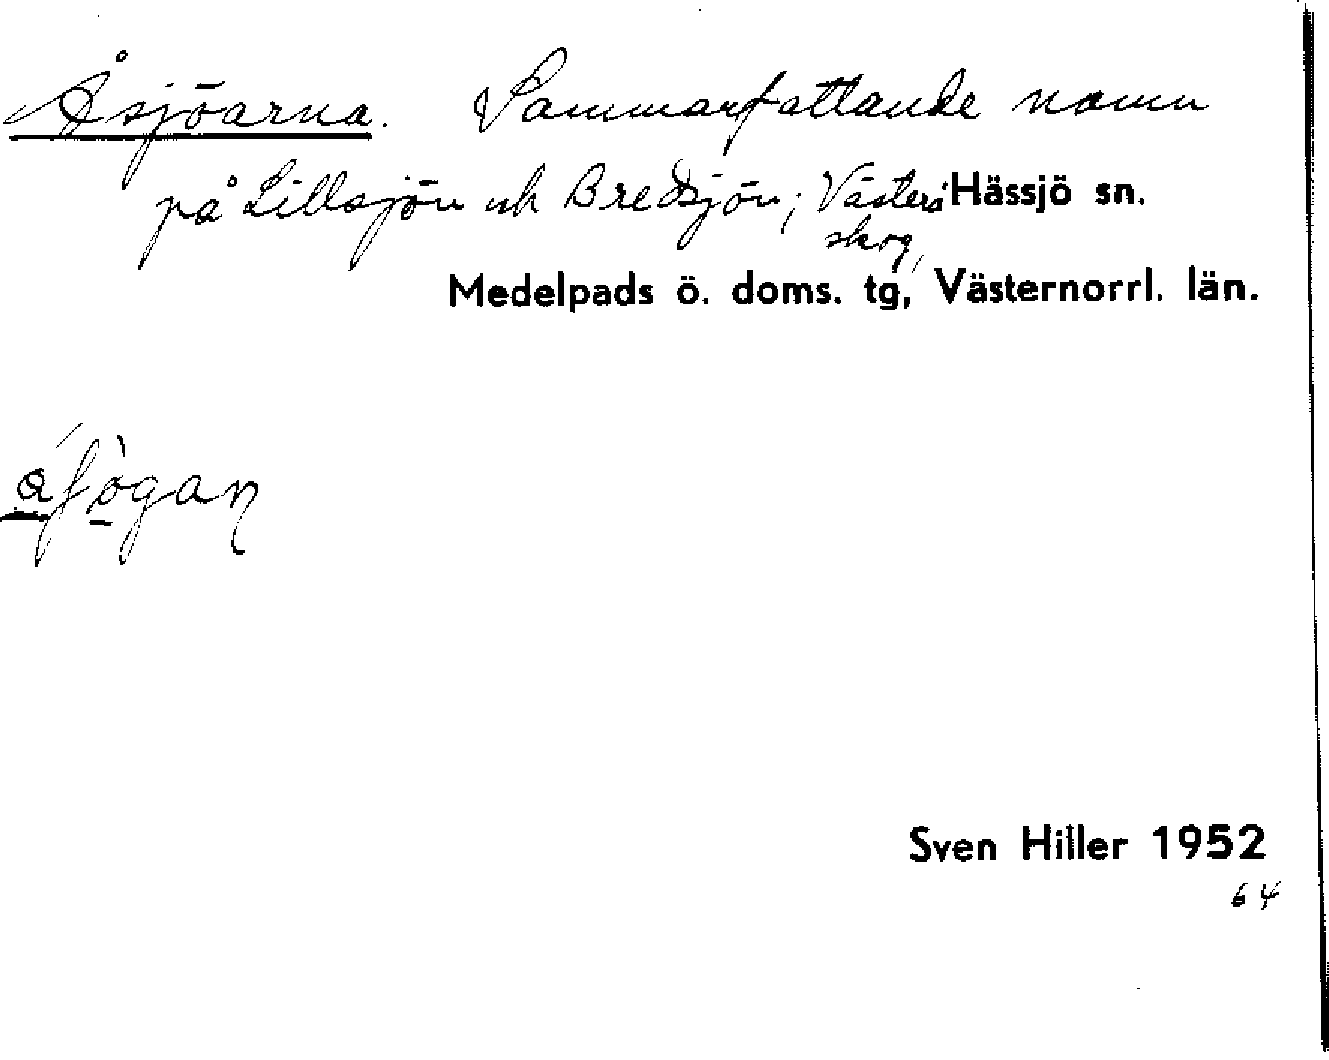 Åsjöarna. Sammanfattande namn
på Lillsjön och Bredsjön; Västerå Hässjö sn.
skog,
Medelpads ö. doms. tg, Västernorrl. län.
Sven Hiller 1952
64